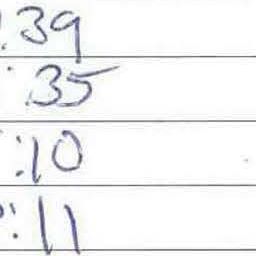 :39
:35
:10
:11